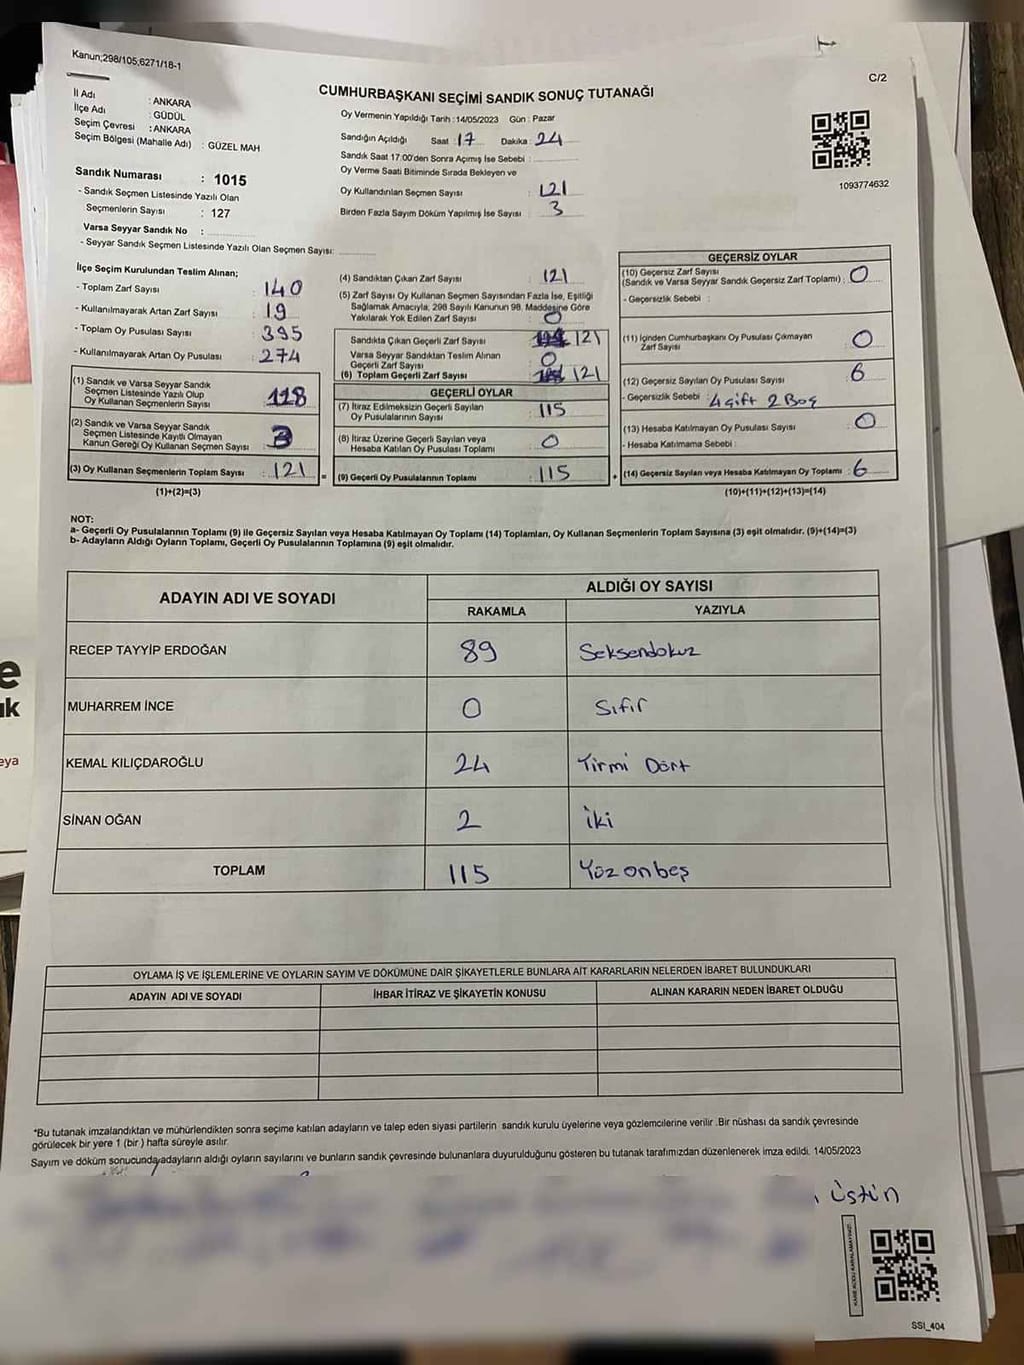 Kanun;298/105,6271/18-1
C/2
CUMHURBAŞKANI SEÇİMİ SANDIK SONUÇ TUTANAĞI
İl Adı : ANKARA
İlçe Adı : GÜDÜL
Seçim Çevresi : ANKARA
Seçim Bölgesi (Mahalle Adı) : GÜZEL MAH
Sandık Numarası : 1015
- Sandık Seçmen Listesinde Yazılı Olan
Seçmenlerin Sayısı : 127
Varsa Seyyar Sandık No :
- Seyyar Sandık Seçmen Listesinde Yazılı Olan Seçmen Sayısı:
Oy Vermenin Yapıldığı Tarih :14/05/2023 Gün : Pazar
Sandığın Açıldığı Saat : 17 Dakika : 24
Sandık Saat 17:00'den Sonra Açımış İse Sebebi :
Oy Verme Saati Bitiminde Sırada Bekleyen ve
Oy Kullandırılan Seçmen Sayısı : 121
Birden Fazla Sayım Döküm Yapılmış İse Sayısı : 3
1093774632
İlçe Seçim Kurulundan Teslim Alınan;
- Toplam Zarf Sayısı : 140
- Kullanılmayarak Artan Zarf Sayısı : 19
- Toplam Oy Pusulası Sayısı : 395
- Kullanılmayarak Artan Oy Pusulası : 274
(1) Sandık ve Varsa Seyyar Sandık
Seçmen Listesinde Yazılı Olup
Oy Kullanan Seçmenlerin Sayısı : 118
(2) Sandık ve Varsa Seyyar Sandık
Seçmen Listesinde Kayıtlı Olmayan
Kanun Gereği Oy Kullanan Seçmen Sayısı : 3
(3) Oy Kullanan Seçmenlerin Toplam Sayısı : 121
(1)+(2)=(3)
(4) Sandıktan Çıkan Zarf Sayısı : 121
(5) Zarf Sayısı Oy Kullanan Seçmen Sayısından Fazla İse, Eşitliği
Sağlamak Amacıyla, 298 Sayılı Kanunun 98. Maddesine Göre
Yakılarak Yok Edilen Zarf Sayısı : 0
Sandıkta Çıkan Geçerli Zarf Sayısı : 121
Varsa Seyyar Sandıktan Teslim Alınan
Geçerli Zarf Sayısı : 0
(6) Toplam Geçerli Zarf Sayısı : 121
GEÇERLİ OYLAR
(7) İtiraz Edilmeksizin Geçerli Sayılan
Oy Pusulalarının Sayısı : 115
(8) İtiraz Üzerine Geçerli Sayılan veya
Hesaba Katılan Oy Pusulası Toplamı : 0
= (9) Geçerli Oy Pusulalarının Toplamı : 115
GEÇERSİZ OYLAR
(10) Geçersiz Zarf Sayısı
(Sandık ve Varsa Seyyar Sandık Geçersiz Zarf Toplamı) : 0
- Geçersizlik Sebebi :
(11) İçinden Cumhurbaşkanı Oy Pusulası Çıkmayan
Zarf Sayısı : 0
(12) Geçersiz Sayılan Oy Pusulası Sayısı : 6
- Geçersizlik Sebebi : 4 Çift 2 Boş
(13) Hesaba Katılmayan Oy Pusulası Sayısı : 0
- Hesaba Katılmama Sebebi :
+ (14) Geçersiz Sayılan veya Hesaba Katılmayan Oy Toplamı : 6
(10)+(11)+(12)+(13)=(14)
NOT:
a- Geçerli Oy Pusulalarının Toplamı (9) ile Geçersiz Sayılan veya Hesaba Katılmayan Oy Toplamı (14) Toplamları, Oy Kullanan Seçmenlerin Toplam Sayısına (3) eşit olmalıdır. (9)+(14)=(3)
b- Adayların Aldığı Oyların Toplamı, Geçerli Oy Pusulalarının Toplamına (9) eşit olmalıdır.
ADAYIN ADI VE SOYADI
ALDIĞI OY SAYISI
RAKAMLA YAZIYLA
RECEP TAYYİP ERDOĞAN 89 Seksendokuz
MUHARREM İNCE 0 Sıfır
KEMAL KILIÇDAROĞLU 24 Yirmi Dört
SİNAN OĞAN 2 iki
TOPLAM 115 Yüz onbeş
OYLAMA İŞ VE İŞLEMLERİNE VE OYLARIN SAYIM VE DÖKÜMÜNE DAİR ŞİKAYETLERLE BUNLARA AİT KARARLARIN NELERDEN İBARET BULUNDUKLARI
ADAYIN ADI VE SOYADI İHBAR İTİRAZ VE ŞİKAYETİN KONUSU ALINAN KARARIN NEDEN İBARET OLDUĞU
*Bu tutanak imzalandıktan ve mühürlendikten sonra seçime katılan adayların ve talep eden siyasi partilerin sandık kurulu üyelerine veya gözlemcilerine verilir .Bir nüshası da sandık çevresinde
görülecek bir yere 1 (bir ) hafta süreyle asılır.
Sayım ve döküm sonucunda,adayların aldığı oyların sayılarını ve bunların sandık çevresinde bulunanlara duyurulduğunu gösteren bu tutanak tarafımızdan düzenlenerek imza edildi. 14/05/2023
üstün
KARE KODU KARALAMAYINIZ!
SSI_404